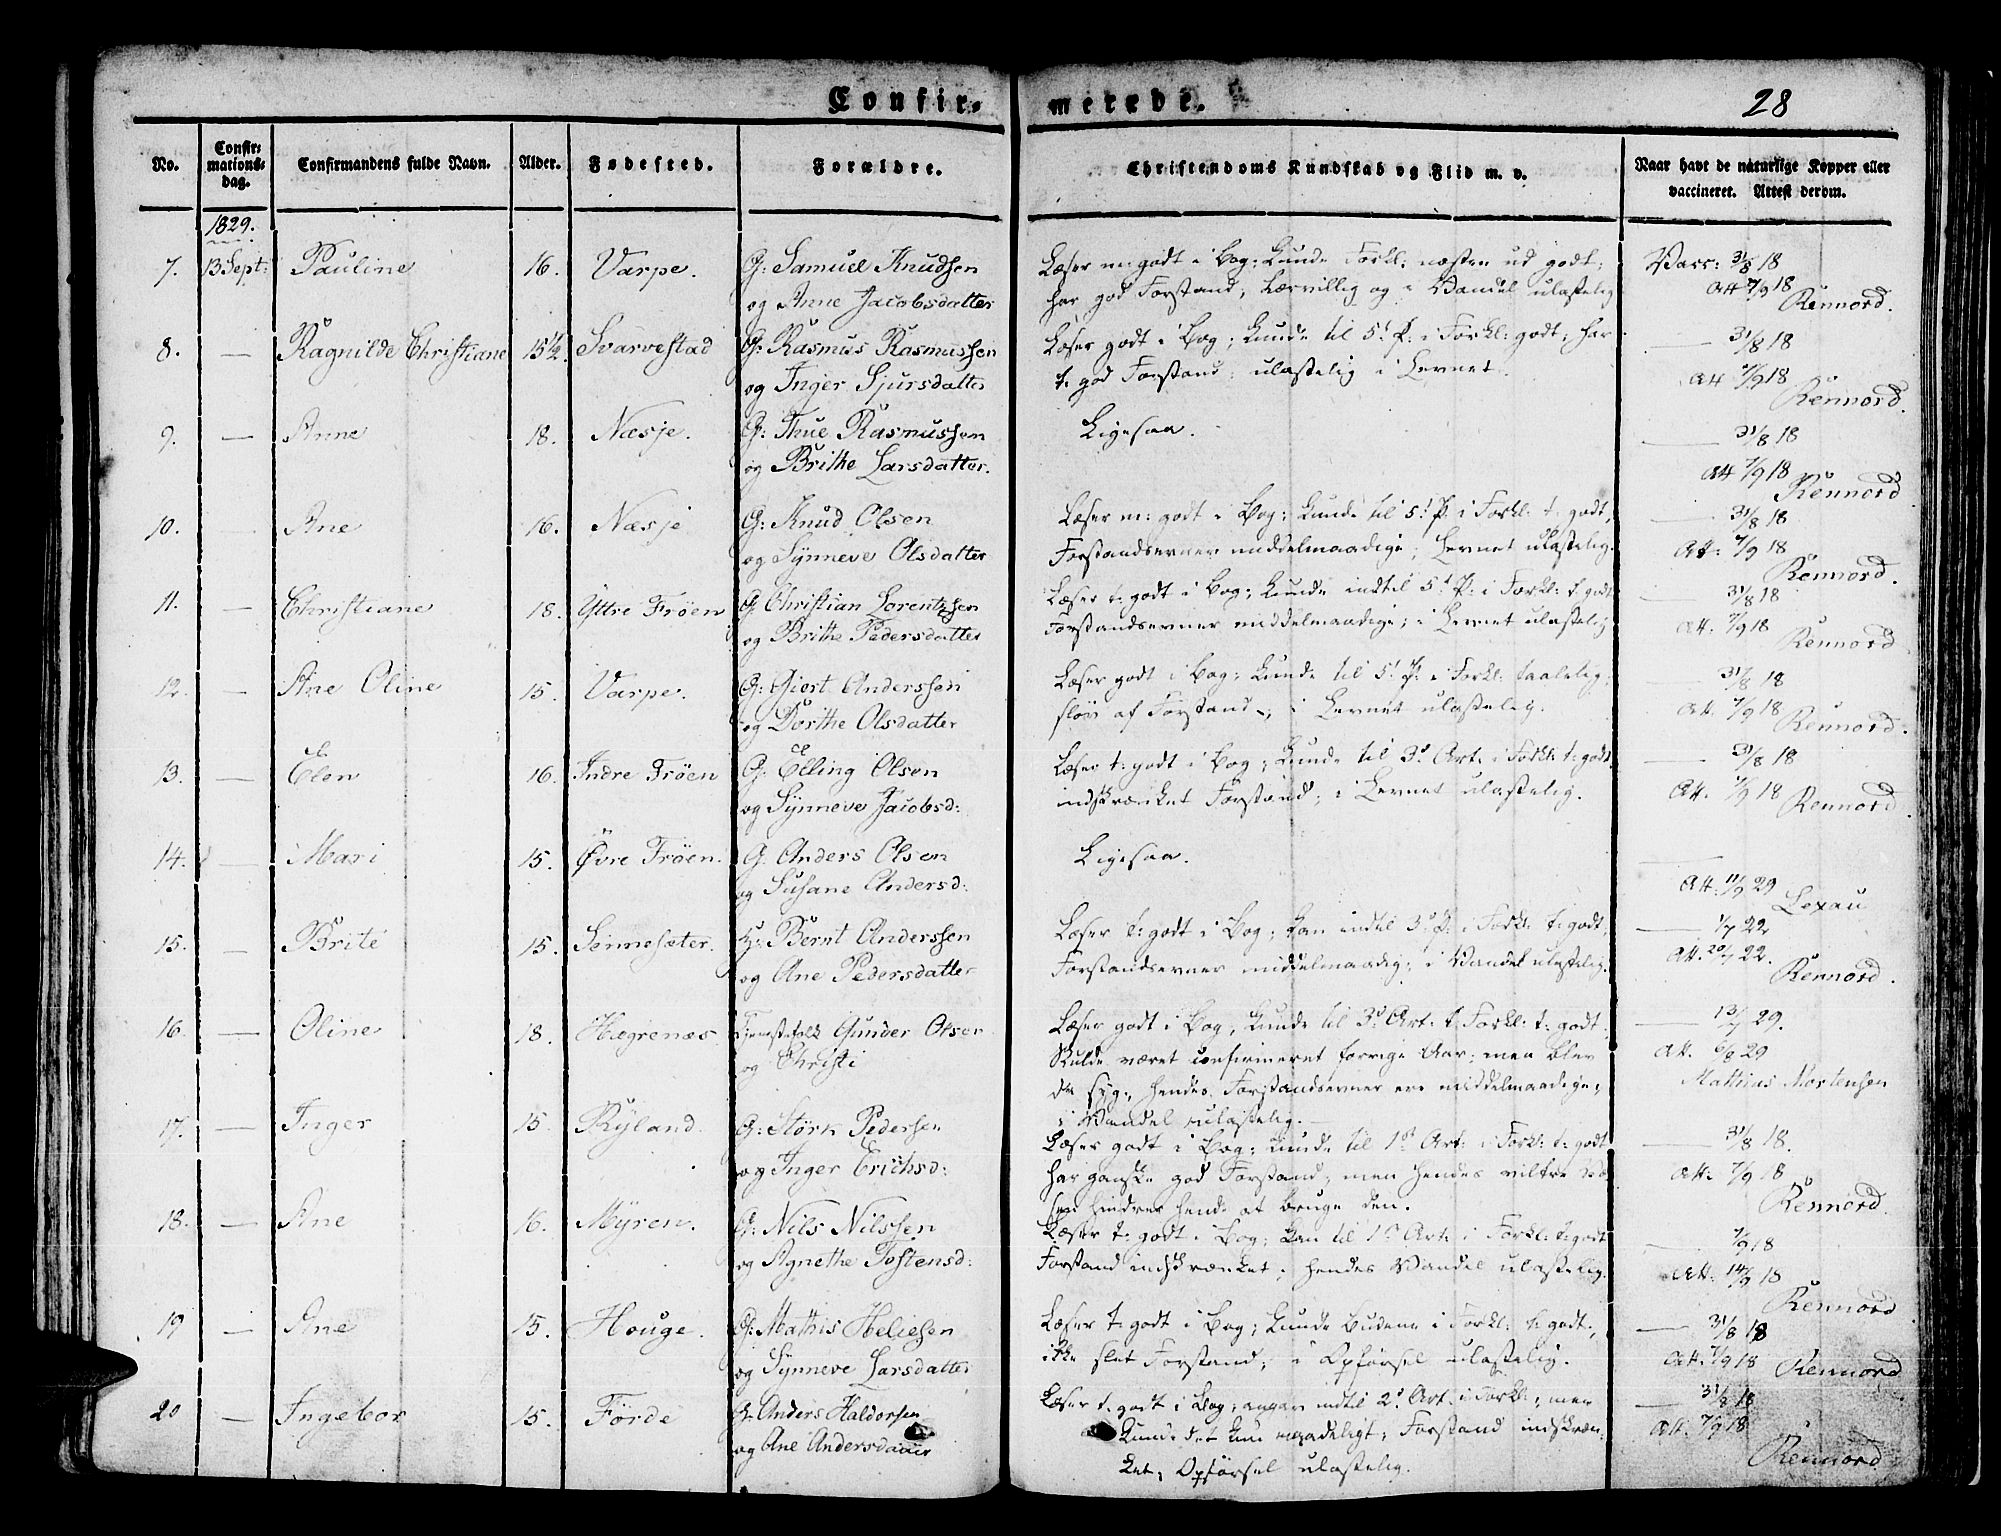 Confir- merede. 28
No. Confirmationsdag. Confirmandens fulde Navn. Alder. Fødested. Forældre. Christendoms Kundskab og Flid m. v. Naar havt de naturlige Kopper eller vaccineret. Attest derom.
1829.
7. 13 Sept: Pauline 16. Varpe. G: Samuel Knudsen Læser m: godt i Bog; Kunde Forkl: næsten ud godt; Vacc: 31/8 18
og Anne Jacobsdatter har god Forstand, lærvillig og i Vandel ulastelig Att 7/9 18 Rennord.
8. — Ragnilde Christiane 15 1/2. Svarvestad G: Rasmus Rasmussen Læser godt i Bog; Kunde til 5t P: i Forkl: godt; har — 31/8 18
og Inger Sjursdatter t. god Forstand; ulastelig i Levnet. Att 7/9 18 Rennord.
9. — Anne 18. Næsje. G: Thue Rasmussen Ligesaa. — 31/8 18
og Brithe Larsdatter. Att 7/9 18 Rennord
10. Ane 16. Næsje G: Knud Olsen Læser m: godt i Bog; Kunde til 5t P. i Forkl: t. godt, — 31/8 18
og Synneve Olsdatter Forstandsevner middelmaadige; Levnet ulastelig. Att: 7/9 18 Rennord.
11. — Christiane 18. Yttre Fröen G: Christian Lorentzsen Læser t: godt i Bog; Kunde indtil 5t P: i Forkl: t. godt — 31/8 18
og Brithe Pedersdatter Forstandsevner middelmaadige; i Levnet ulastelig Att: 7/9 18 Rennord
12. — Ane Oline 15. Varpe. G: Giert Anderssen Læser godt i Bog; Kunde til 5t P: i Forkl: taalelig; — 31/8 18
og Dorthe Olsdatter sløv af Forstand; i Levnet ulastelig. Att. 7/9 18 Rennord.
13. — Elen 16. Indre Fröen G. Elling Olsen Læser t: godt i Bog; Kunde til 3d Art: i Forkl: t: godt. — 31/8 18
og Synneve Jacobsd: indskrænket Forstand; i Levnet ulastelig. Att. 7/9 18 Rennord
14. — Mari 15. Övre Fröen. G. Anders Olsen Ligesaa. —
og Susane Andersd: Att: 11/9 29 Lexau
15. — Brite 15. Sönnesæter. Bernt Anderssen Læser t: godt i Bog; kan indtil 3d P: i Forkl: t: godt; — 1/7 22
og Ane Pedersdatter Forstandsevner middelmaadig; i Vandel ulastelig. Att. 20/7 22. Rennord.
16. — Oline 18. Hægrenæs Tjenestefolk Gunder Olsen Læser godt i Bog, Kunde til 3d Art: i Forkl: t: godt. — 13/7 29.
og Christi Skulde været confirmeret forrige Aar; men blev Att. 6/8 29
da syg; hendes Forstandsevner ere middelmaadige; Mathias Mortensen
i Vandel ulastelig.
17. — Inger 15. Ryland. G: Störk Pedersen Læser godt i Bog; Kunde til 1st Art: i Forkl: t: godt — 31/8 18.
og Inger Erichsd: har ganske god Forstand; men hendes viltre Att. 7/9 18
sen hindrer hende at bruge den. Rennord
18. — Ane 16. Myren. G: Nils Nilssen Læser t: godt i Bog; kan til 1st Art: i Forkl: t: godt — 7/9 18
og Agnethe Tostensd: Forstand indskrænket; hendes Vandel ulastelig. Att. 14/9 18 Rennord
19 — Ane 15. Houge. G: Mathis Heliesen Læser t: godt i Bog; Kunde Budene i Forkl: t: godt; — 31/8 18
og Synneve Larsdatter ikke slet Forstand; i Opførsel ulastelig. Att. 7/9 18 Rennord
20 — Ingebor 15. Förde G. Anders Haldorsen Læser t. godt i Bog; angav indtil 2d Art. i Forkl:; men — 31/8 18
og Ane Andersdatter Kunde det kun maadeligt; Forstand indskræn- Att. 7/9 18
ket; Opførsel ulastelig. Rennord